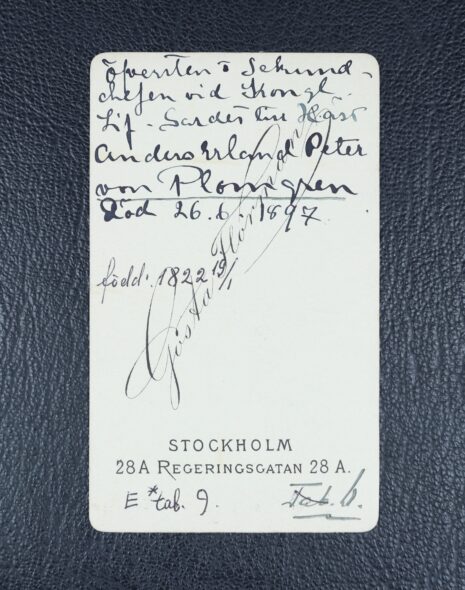 öfversten & Sekund-
chefen vid Kongl.
Lif-Gardet till Häst
Anders Erland Peter
von Plomgren
Död 26.6.1897.
född: 1822 19/1
Gösta Florman
STOCKHOLM
28A REGERINGSGATAN 28 A.
E* tab. 9.
Tab. 6.